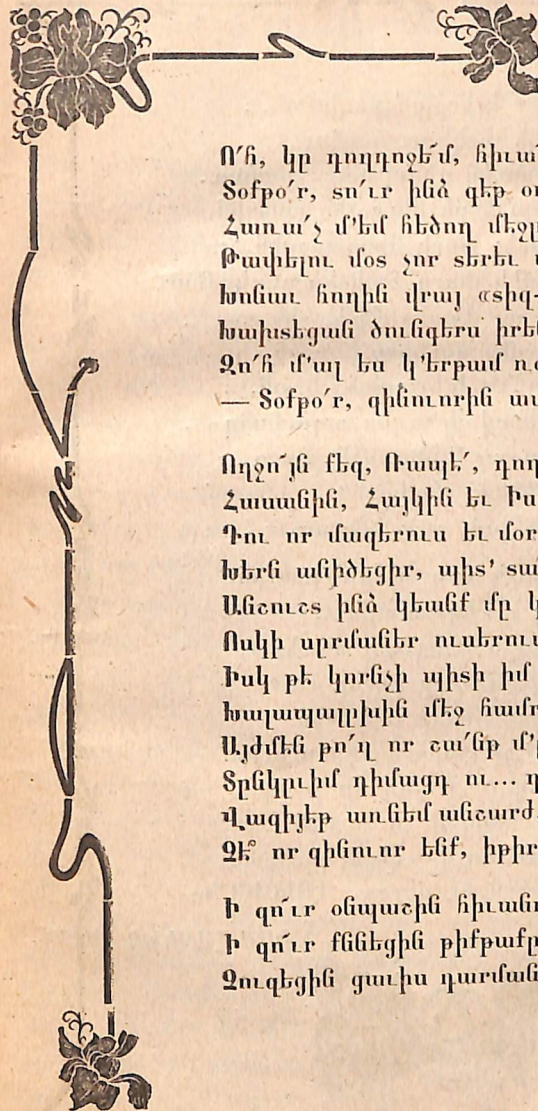 Ո՜հ, կը դողդոջե՜մ, հիւա
Տօքթօ՛ր, տո՛ւր ինձ գէթ
Հառա՛չ մ՚եմ հեծող մէջ
Թափելու մօտ չոր տերեւ
Խոնաւ հողին վրայ «տիզ-
Խախտեցան ծունգերս իրե
Զո՛հ մ՚ալ ես կ՚երթամ
— Տօքթօ՛ր, զինուորին

Ողջո՜յն քեզ, Ռասպե՛,
Հասանին, Հայկին եւ Իս
Դու որ մազերուս եւ մօր
Խերն անիծեցիր, պիտ՚ տա
Անշուշտ ինձ կեանք մը
Ոսկի սըրմաներ ուսերու
Իսկ թէ կորնչի պիտի իմ
Խալապալըխին մէջ համր
Այժմէն թո՛ղ որ շա՛նթ մ՚ը
Տընկըւիմ դիմացդ ու...
Վազիյէթ առնեմ անշարժ
Չէ՞ որ զինուոր ենք, իթիր

Ի զո՜ւր օնպաշին հիւան
Ի զո՜ւր քննեցին թիֆթաքը
Չուզեցին ցաւիս դարման